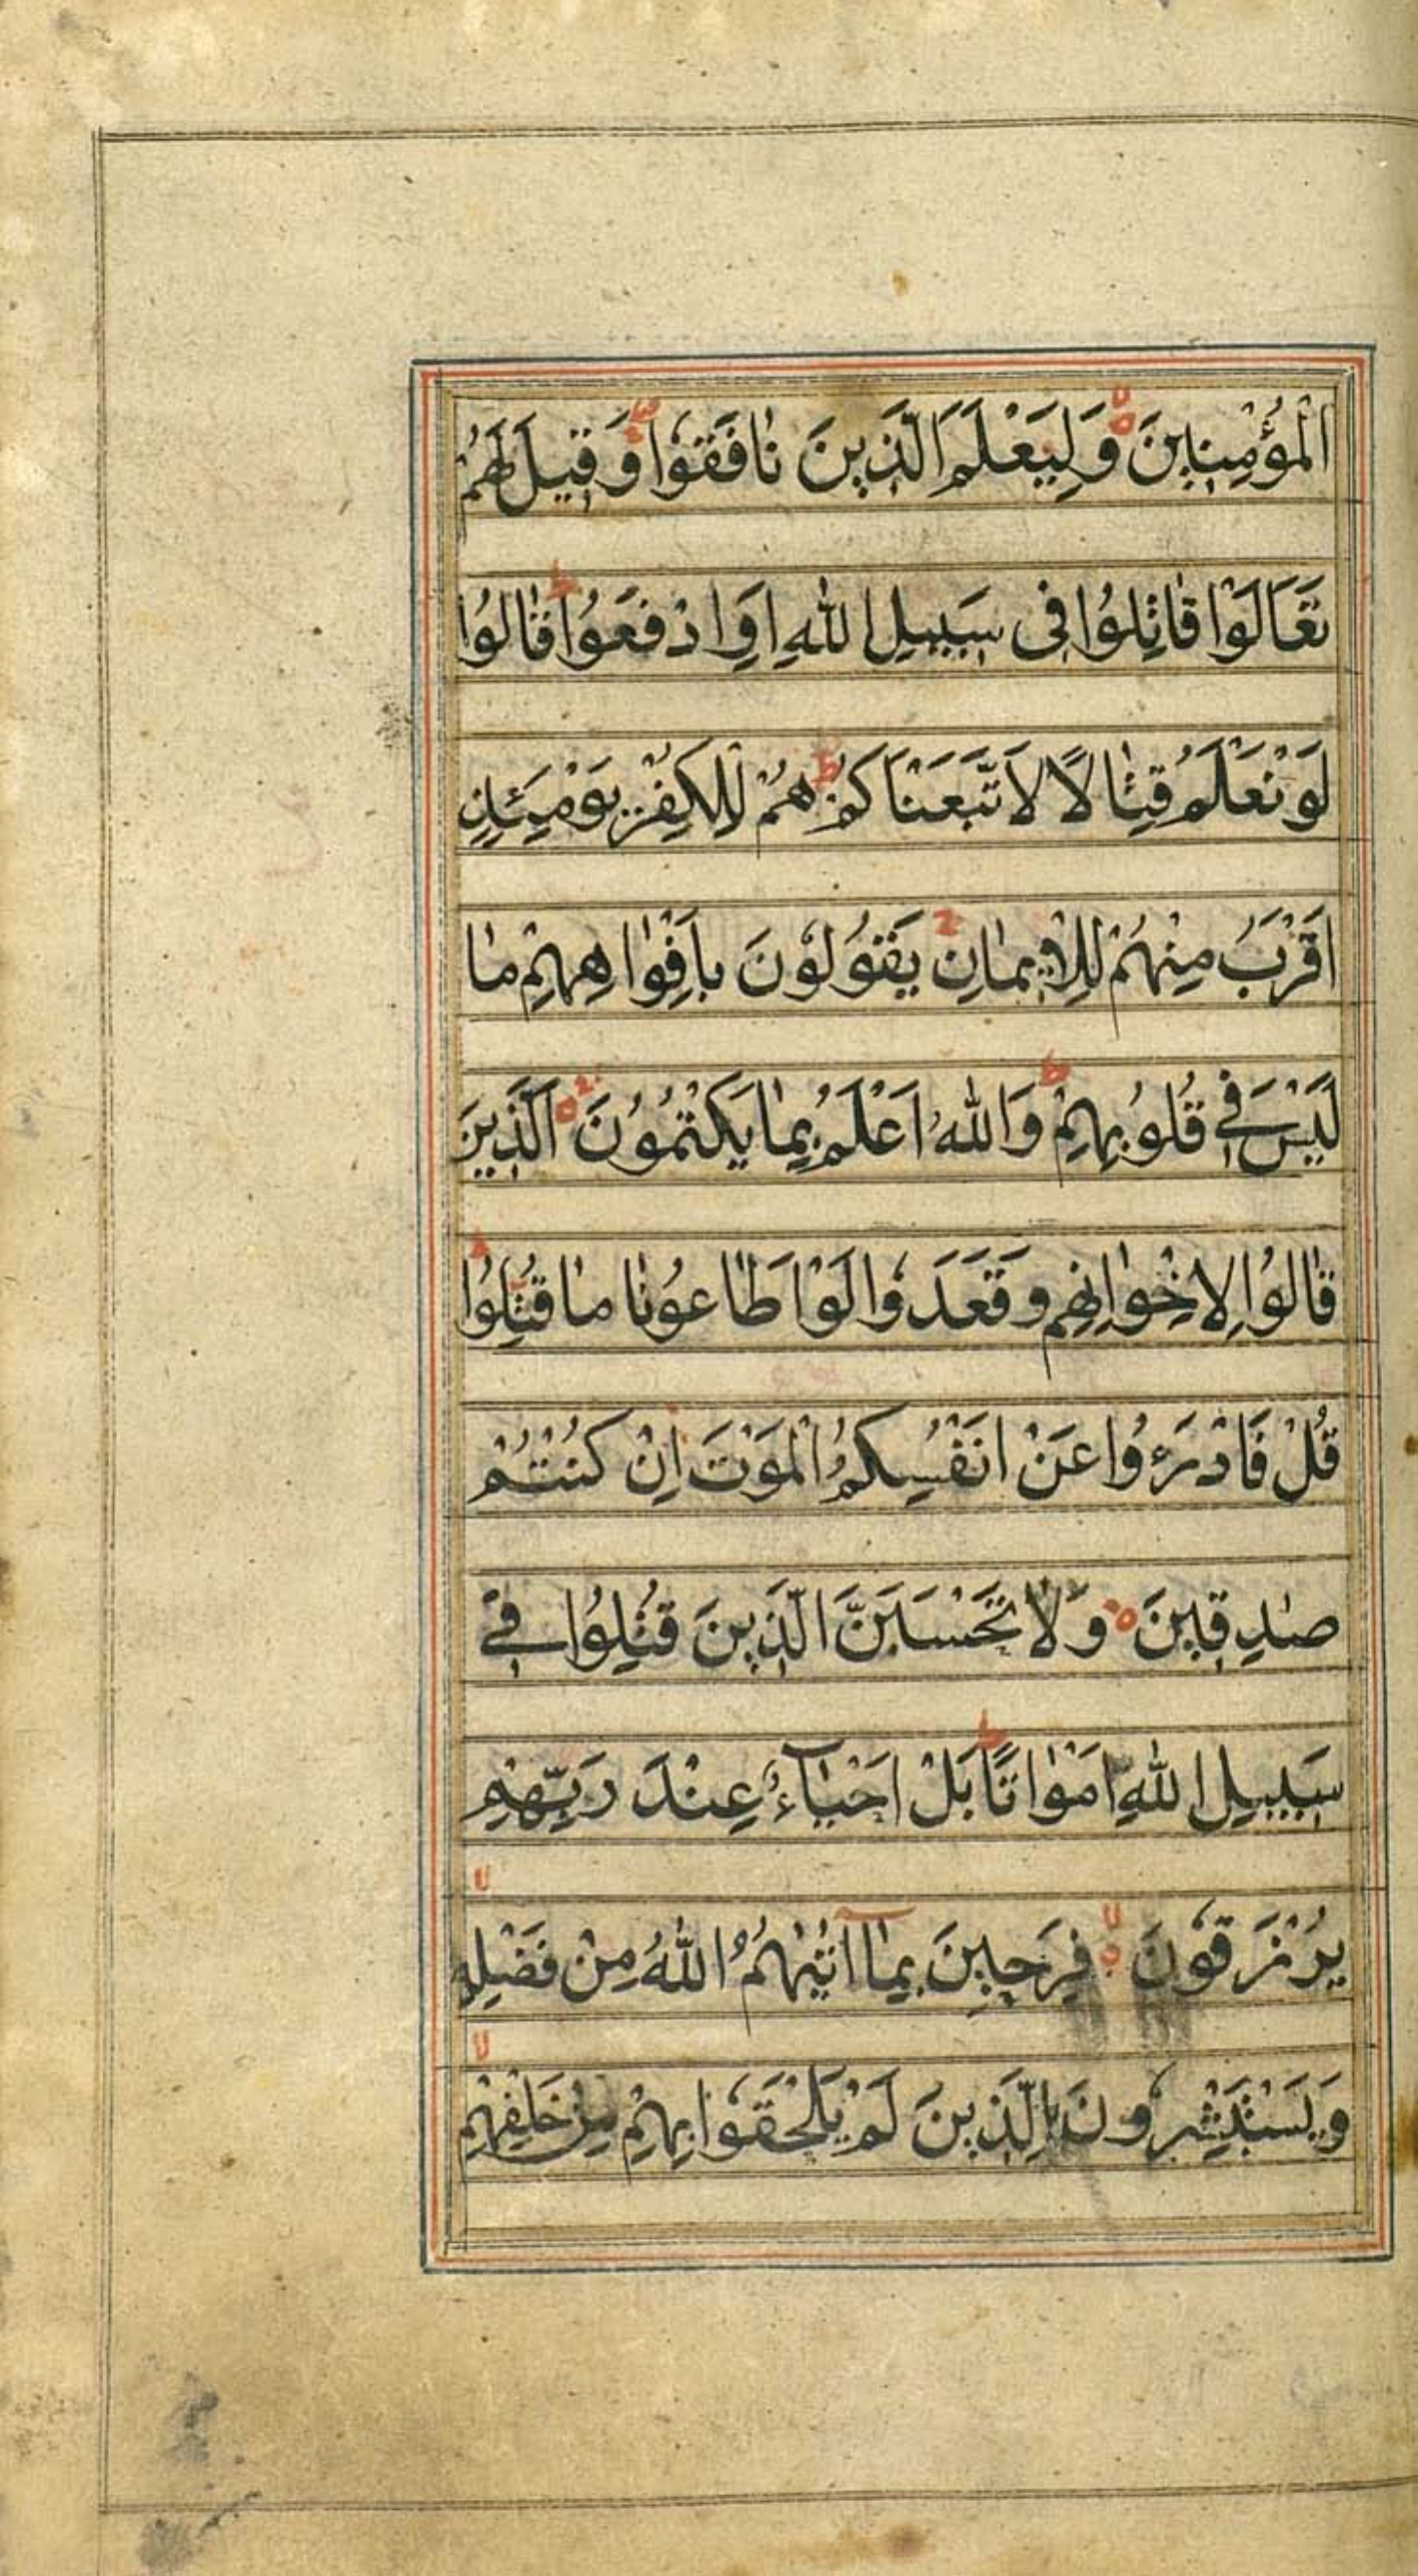 الْمُؤْمِنِينَ ۝ وَلِيَعْلَمَ الَّذِينَ نَافَقُوْا وَقِيلَ لَهُمْ
تَعَالَوْا قَاتِلُوْا فِى سَبِيلِ اللّٰهِ اَوِ ادْفَعُوْا ط قَالُوْا
لَوْ نَعْلَمُ قِتَالًا لَاتَّبَعْنَاكُمْ ط هُمْ لِلْكُفْرِ يَوْمَئِذٍ
اَقْرَبُ مِنْهُمْ لِلْاِيمَانِ ج يَقُوْلُوْنَ بِاَفْوَاهِهِمْ مَا
لَيْسَ فِى قُلُوْبِهِمْ ط وَاللّٰهُ اَعْلَمُ بِمَا يَكْتُمُوْنَ ۝ اَلَّذِينَ
قَالُوْا لِاِخْوَانِهِمْ وَقَعَدُوْا لَوْ اَطَاعُوْنَا مَا قُتِلُوْا ط
قُلْ فَادْرَءُوْا عَنْ اَنْفُسِكُمُ الْمَوْتَ اِنْ كُنْتُمْ
صٰدِقِينَ ۝ وَلَا تَحْسَبَنَّ الَّذِينَ قُتِلُوْا فِى
سَبِيلِ اللّٰهِ اَمْوَاتًا ط بَلْ اَحْيَآءٌ عِنْدَ رَبِّهِمْ
يُرْزَقُوْنَ ۝ لا فَرِحِينَ بِمَآ اٰتٰىهُمُ اللّٰهُ مِنْ فَضْلِهِ لا
وَيَسْتَبْشِرُوْنَ بِالَّذِينَ لَمْ يَلْحَقُوْا بِهِمْ مِنْ خَلْفِهِمْ لا